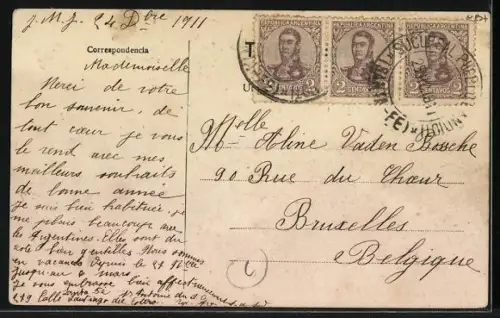 J. M. J. 24 Dbre 1911
Correspondencia
Mademoiselle
Merci de votre
bon souvenir, de
tout cœur je vous
le rend avec mes
meilleurs souhaits
de bonne année
je suis bien habituée, je
me plais beaucoup avec
les Argentines. Elles sont du
reste bien gentilles Nous sommes
en vacances depuis le 27 9bre
jusqu'au 1 mars.
je vous embrasse bien affectueusement
Santa Fé
279 Calle Santiago del Estero
REPUBLICA ARGENTINA
2 CENTAVOS
REPUBLICA ARGENTINA
2 CENTAVOS
REPUBLICA ARGENTINA
2 CENTAVOS
T
SUCURSAL
Melle
Melle Aline Vaden Bossche
90 Rue du Chœur
Bruxelles
Belgique